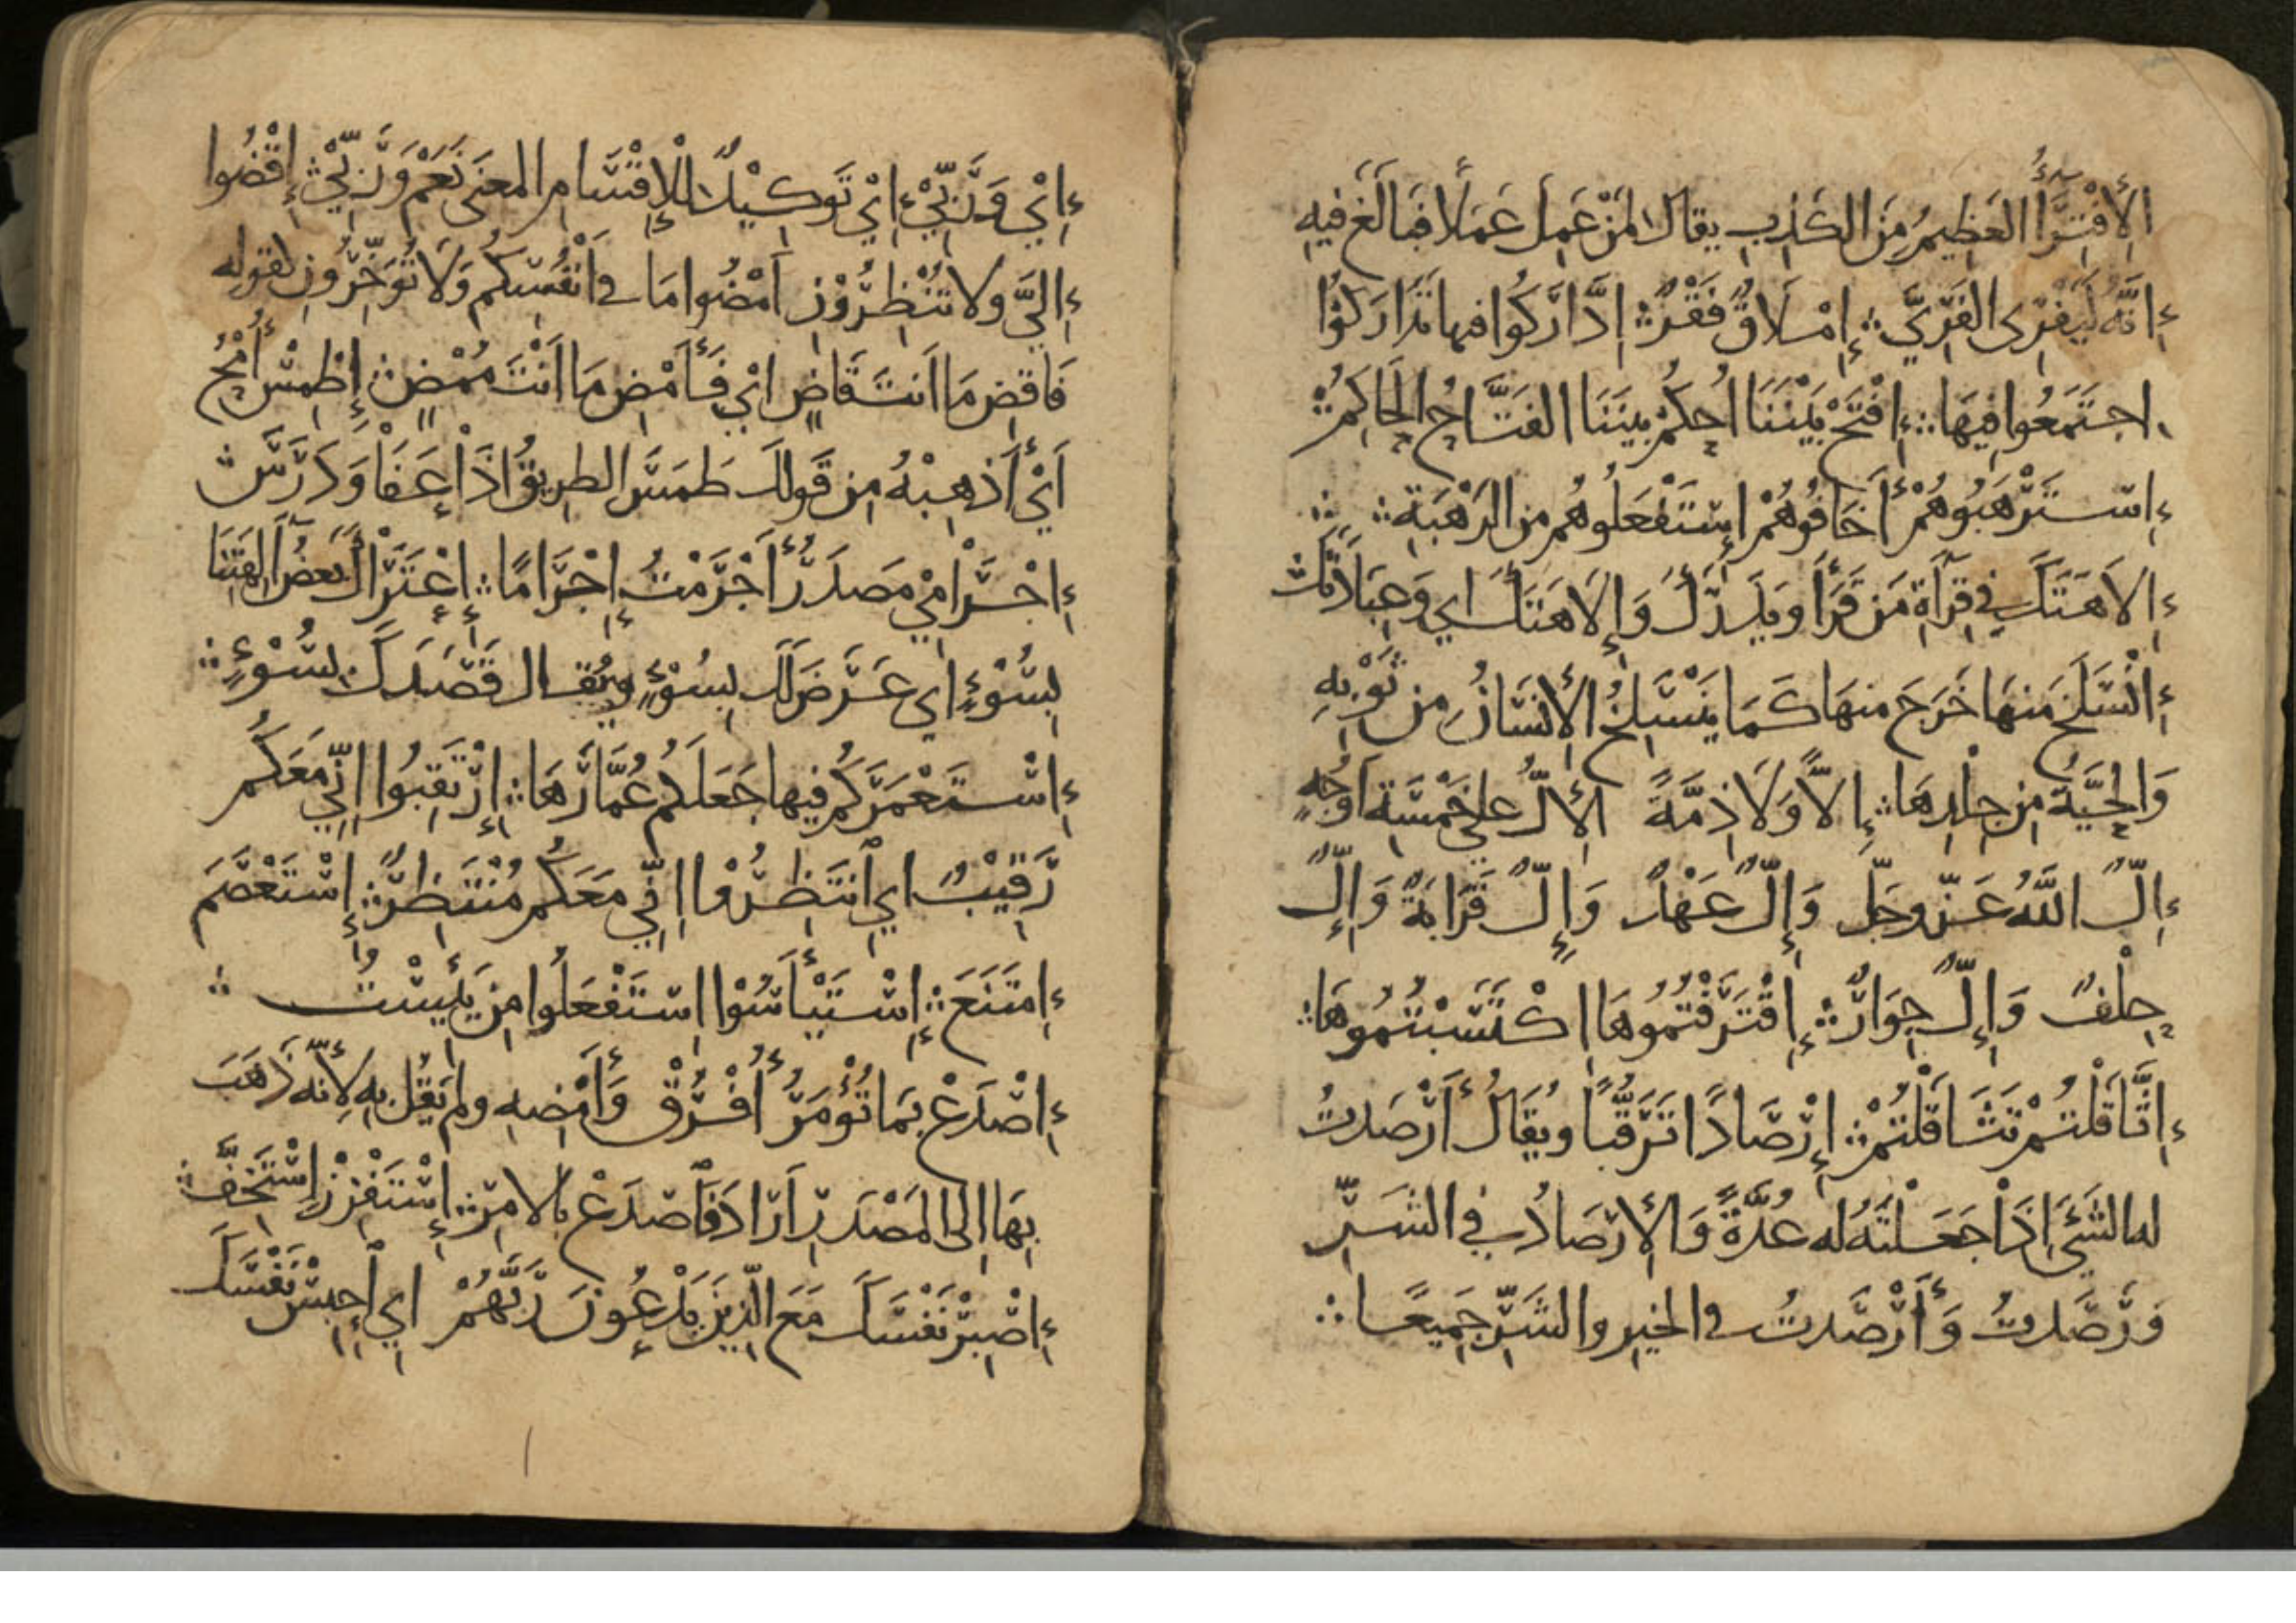 الْأِفْتِرَٓاءُ العَظِيمُ مِنَ الكَذِبِ يقال لِمَنْ عَمِلَ عَمَلًا فَبَالَغَ فِيهِ
إِنَّهُ لَيَفْرِى الفَرِيَّ ؞ إِمْلَاقٌ فَقْرٌ ؞ اِدَّارَكُوا فيها تَدَارَكُوْا
اجتَمَعُوا فِيهَا ؞ إِفْتَحْ بَيْنَنَا اُحكُمْ بينَنَا الفَتَّاحُ الحَاكِمُ ؞
إِسْتَرْهَبُوهُمْ أَخَافُوهُمْ اِسْتَفْعَلُوهُم من الرَهْبَةِ ؞ ؞
إِلاَهَتَكَ في قِرَآةِ مَن قَرَأَ وَيَذَرَكَ وَإِلَاهَتَكَ اي وَعِبَادَتَكَ
إِنْسَلَخَ مِنهَا خَرَجَ منهَا كَمَا يَنْسَلِخُ الأِنسَانُ مِن ثَوْبِهِ
وَالحَيَّةُ مِن جِلْدِهَا ؞ إِلاًّ وَلَا ذِمَّةً الأِلُّ على خَمْسَةِ اَوْجُهٍ
إِلٌّ اللَّهُ عَزّ وجَلّ وَإِلٌّ عَهْدٌ وَإِلٌّ قَرَابَةٌ وَإِلٌّ
حِلْفٌ وَإِلٌّ جِوَارٌ ؞ إِقْتَرَفْتُمُوهَا اِكْتَسَبْتُمُوهَا ؞
إِثَّاقَلْتُمْ تَثَاقَلْتُمْ ؞ إِرْصَادًا تَرَقُّبًا ويُقَالُ أَرْصَدتُ
له الشَئَ اِذَا جَعَلْتَهُ له عُدَّةً وَالأِرْصَادُ في الشَرِّ
وَرَصَدتُ وَأَرْصَدتُ في الخيرِ والشَرِّ جَمِيعًا ؞
إِيْ وَرَبِّيْ إِيْ تَوكِيْدٌ لِلْإِقْسَامِ المعنى نَعَمْ وَرَبِّيْ ؞ إِقْضُوا
إِلَيَّ ولا تُنْظِرُوْنِ اَمْضُوا مَا في اَنْفُسِكُم وَلَا تُؤَخِّرُونِ لقوله
فَاقضِ مَا اَنتَ قَاضٍ اي فَأَمْضِ مَا اَنْتَ مُمْضٍ ؞ إِطْمِسْ أُمْحُ
اَيْ أَذهِبْهُ مِن قَولِكَ طَمَسَ الطريقُ اذَا عَفَا وَدَرَسَ ؞
إِجْرَامْي مَصدَرُ أَجْرَمْتُ إِجْرَامًا ؞ إِعْتَرَاكَ بَعضُ آلِهَتِنَا
بِسُوْءٍ اي عَرَضَ لَكَ بِسُوْءٍ ويُقال قَصَدَكَ بِسُوْءٍ ؞
إِسْتَعْمَرَكُم فِيها جَعَلَكُم عُمَّارَهَا ؞ إِرْتَقِبُوا اِنِّي مَعَكُم
رَقِيْبٌ اي اِنتَظِرُوْا اِنِّي مَعَكُم مُنْتَظِرٌ ؞ إِسْتَعْصَمَ
إِمتَنَعَ ؞ إِسْتَيْأَسُوْا اِسْتَفْعَلُوا مِن يَئِيسْتُ ؞
إِصْدَعْ بِمَا تُؤْمَرُ أُفْرُقْ وَأَمْضِهِ ولم يَقُل بِهِ لِأَنَّه ذَهَبَ
بِهَا اِلى المَصْدَرِ اَرَادَ فَاصدَعْ بالامرِ ؞ إِسْتَفْزِزْ اِسْتَخِفَّ ؞
إِصْبِرْ نَفْسَكَ مَعَ الَّذِينَ يَدْعُونَ رَبَّهُمْ اي اِحبِسْ نَفْسَكَ